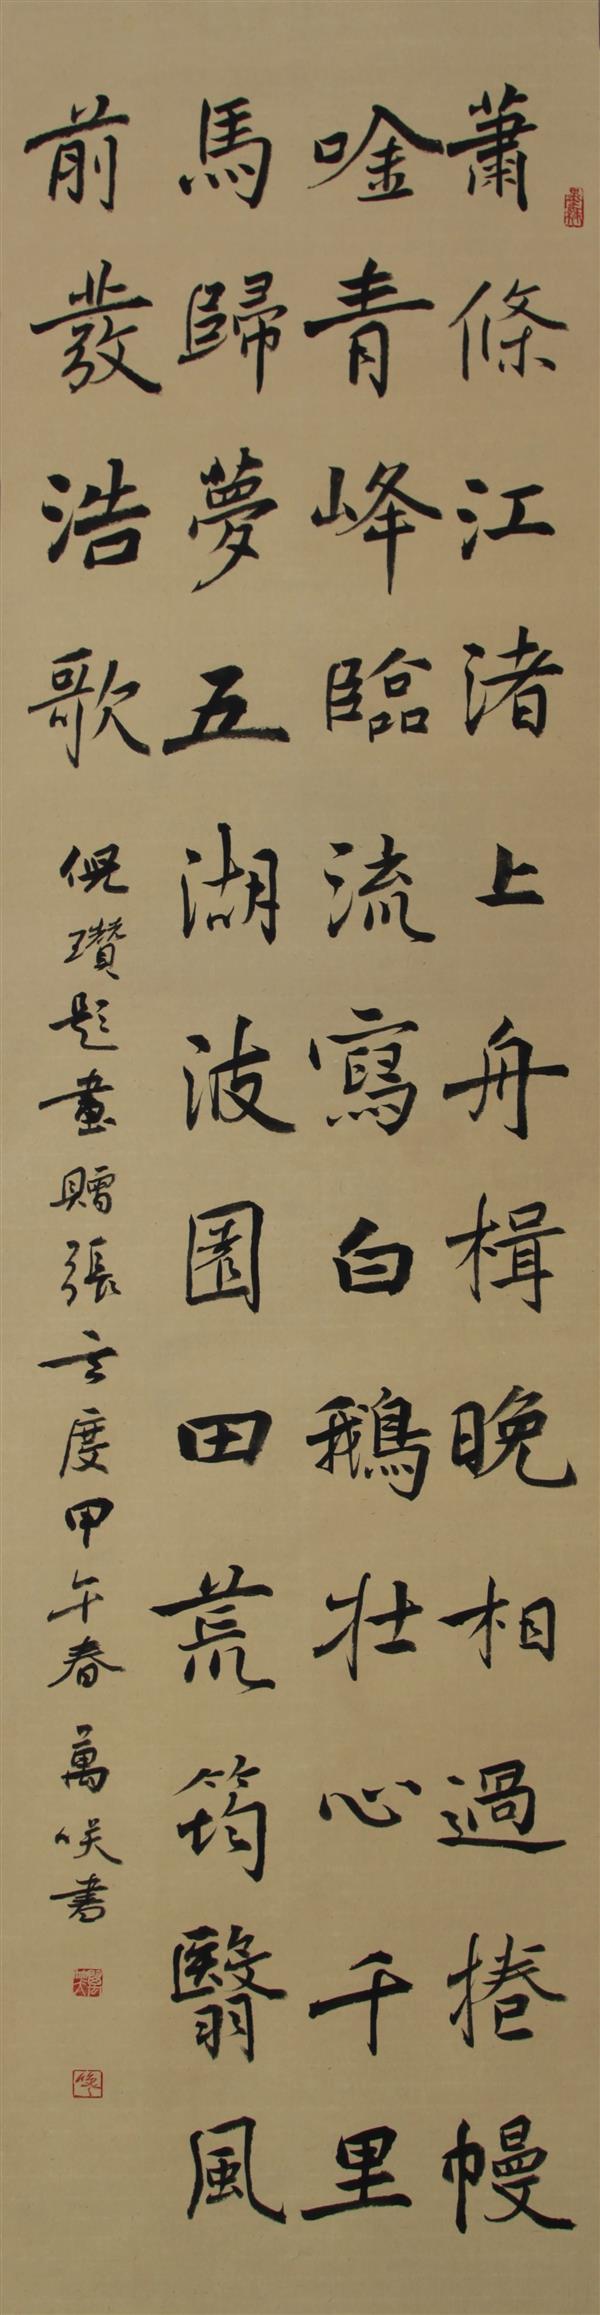 蕭條江渚上舟楫晚相過捲幔
唫青峰臨流寫白鵝壯心千里
馬歸夢五湖波園田荒筠翳風
前發浩歌
倪瓚題畫贈張玄度甲午春萬咲書